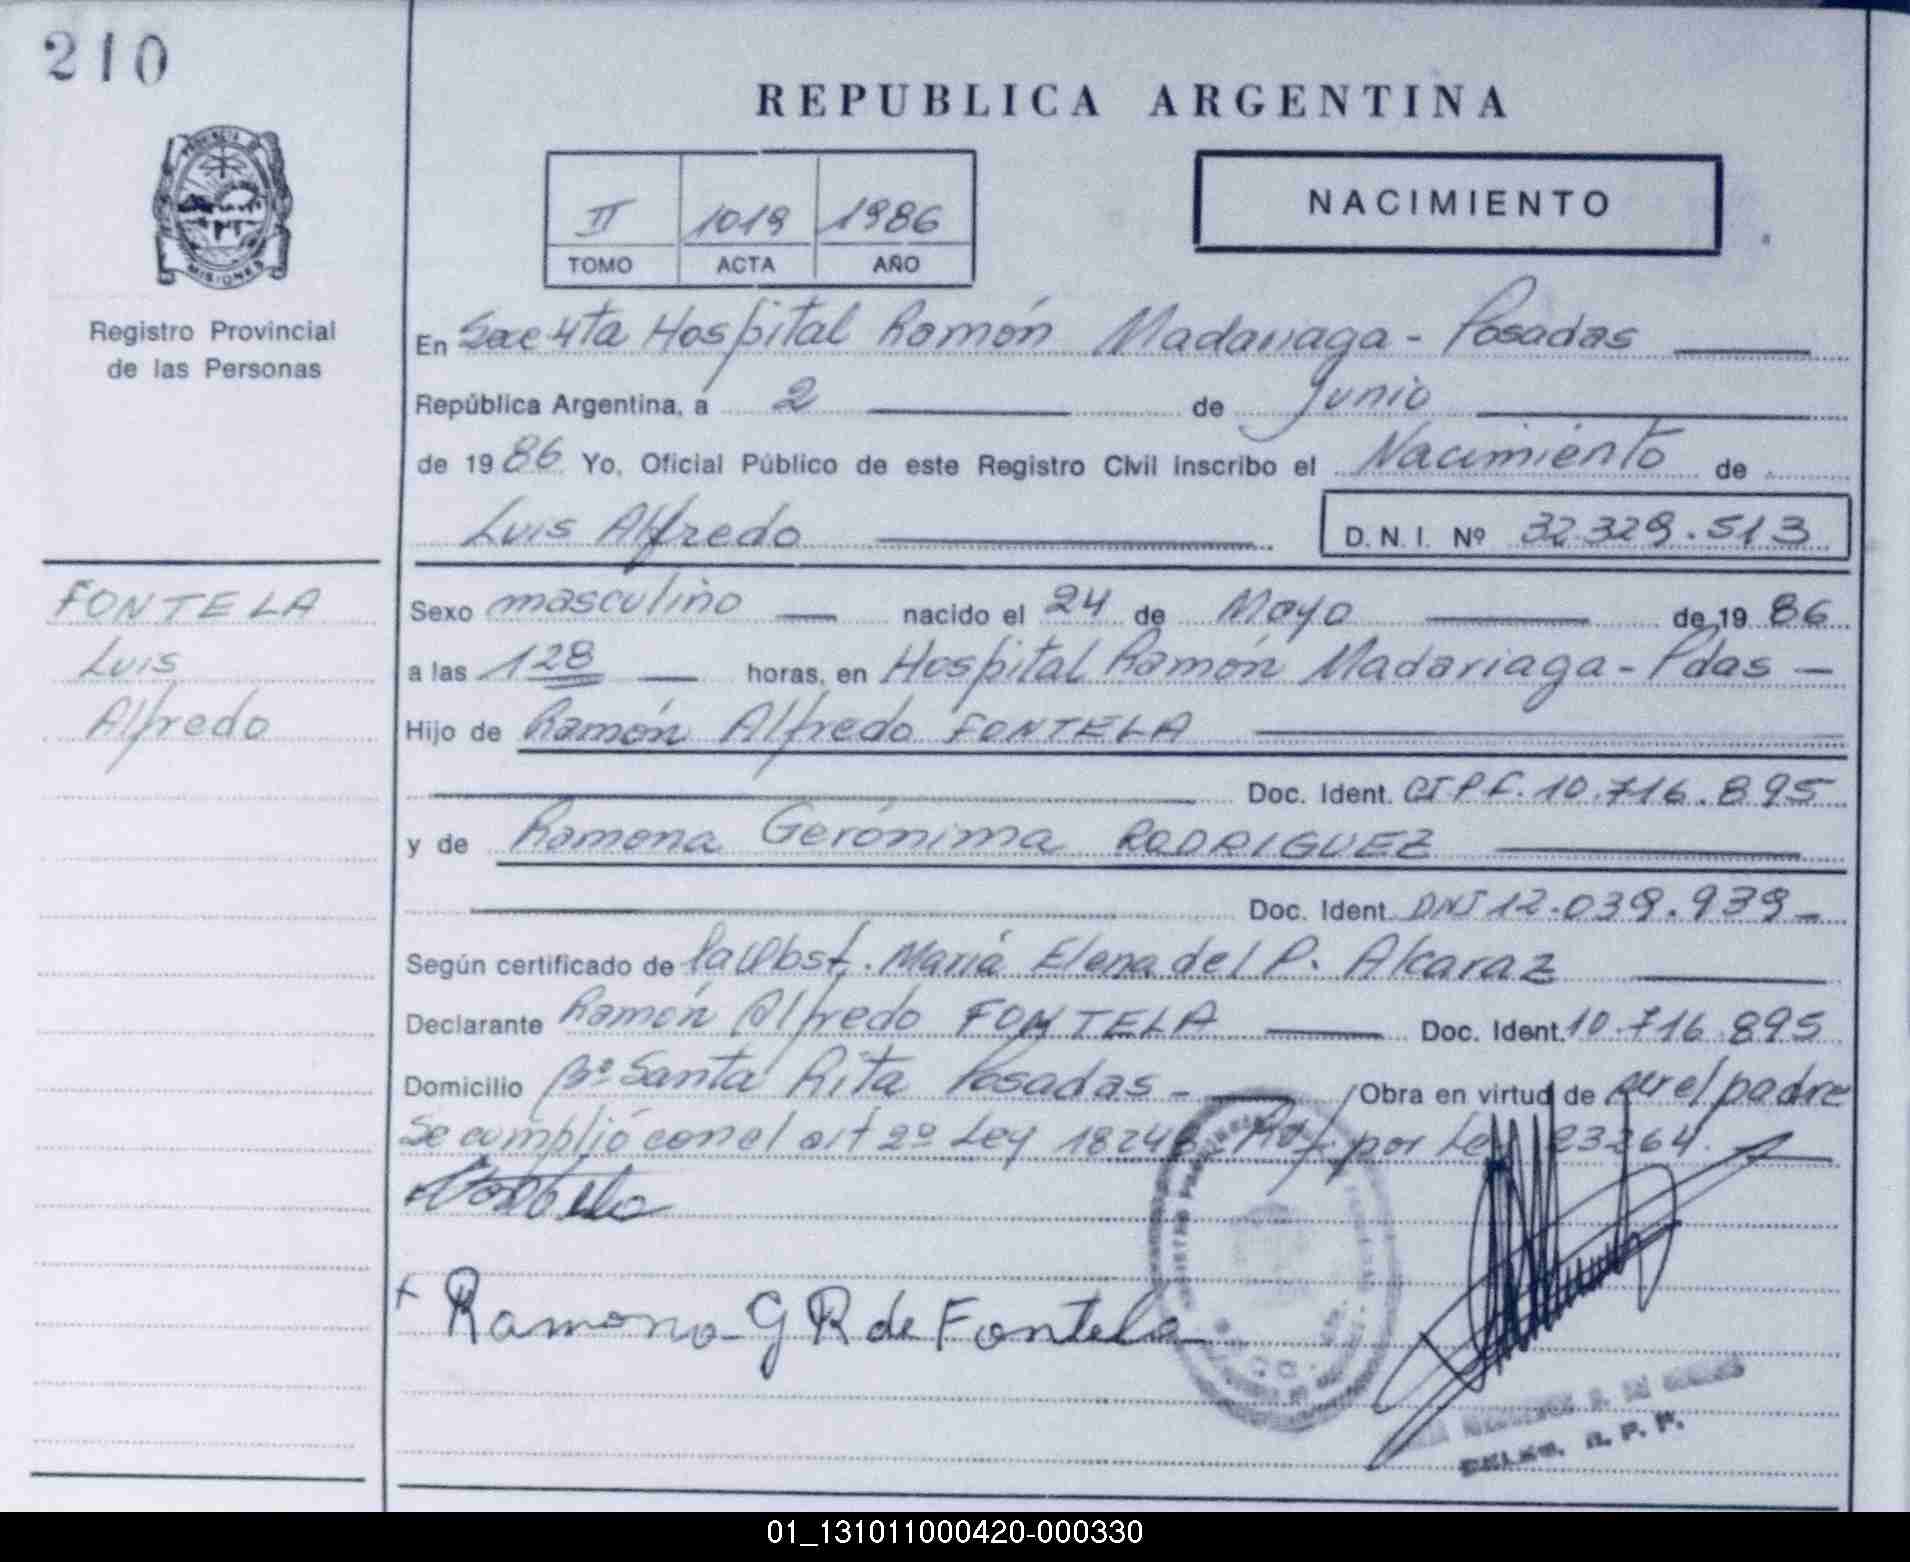 210
REPUBLICA ARGENTINA
PROVINCIA DE
MISIONES
Registro Provincial
de las Personas
II 1019 1986
TOMO ACTA AÑO
NACIMIENTO
En Secc 4ta Hospital Ramón Madariaga - Posadas
República Argentina, a 2 de Junio
de 1986 Yo, Oficial Público de este Registro Civil inscribo el Nacimiento de
Luis Alfredo D.N.I. Nº 32.329.513
FONTELA
Luis
Alfredo
Sexo masculino nacido el 24 de Mayo de 1986
a las 1 28 horas, en Hospital Ramón Madariaga - Pdas -
Hijo de Ramón Alfredo FONTELA
Doc. Ident. CIPF. 10.716.895
y de Ramona Gerónima RODRIGUEZ
Doc. Ident. DNI 12.039.939 -
Según certificado de la Obst. María Elena del P. Alcaraz
Declarante Ramón Alfredo FONTELA Doc. Ident. 10.716.895
Domicilio Bº Santa Rita Posadas - Obra en virtud de ser el padre
Se cumplió con el art 2º Ley 18248 Mof. por Ley 23264.
Ramona G R de Fontela
01_131011000420-000330